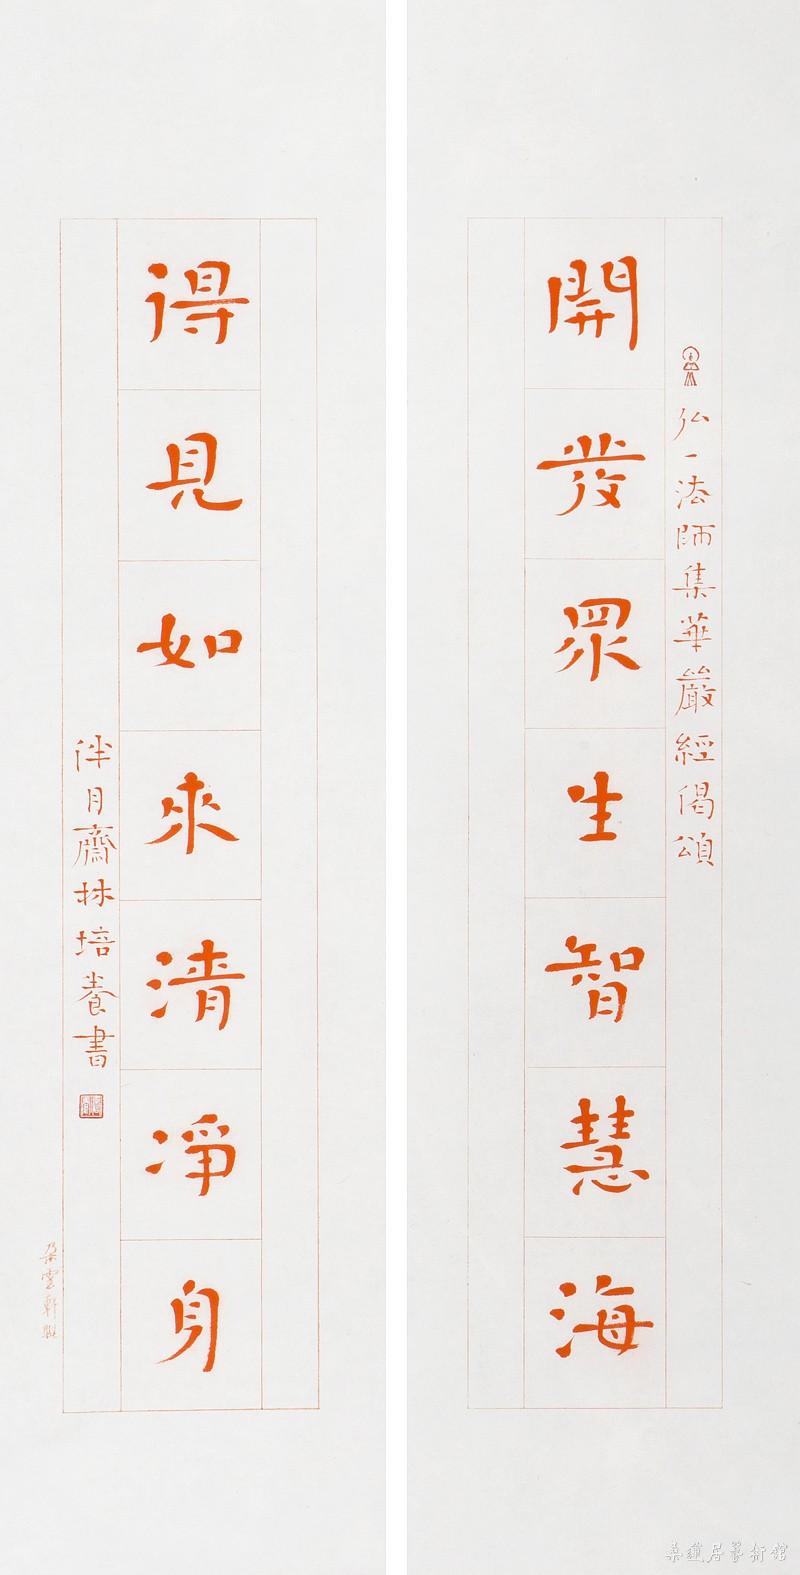 弘一法師集華嚴經偈頌
開發眾生智慧海
得見如來清淨身
泮月齋林培養書
朵雲軒製
桑蓮居藝術館